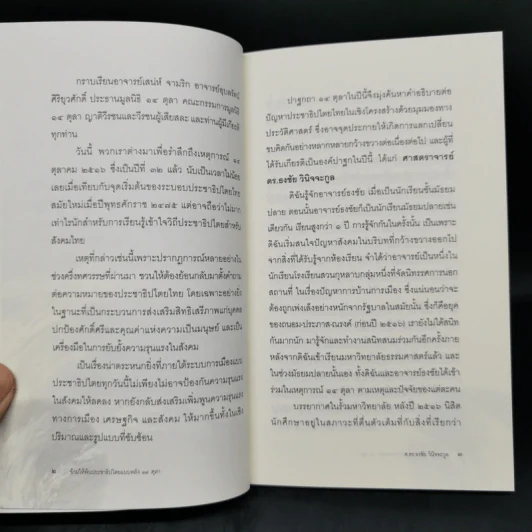 กราบเรียนอาจารย์เสน่ห์ จามริก อาจารย์อุบลรัตน์
ศิริยุวศักดิ์ ประธานมูลนิธิ ๑๔ ตุลา คณะกรรมการมูลนิธิ
๑๔ ตุลา ญาติวีรชนและวีรชนผู้เสียสละ และท่านผู้มีเกียรติ
ทุกท่าน
วันนี้ พวกเราต่างมาเพื่อรำลึกถึงเหตุการณ์ ๑๔
ตุลาคม ๒๕๑๖ ซึ่งเป็นปีที่ ๓๒ แล้ว นับเป็นเวลาไม่น้อย
เลยเมื่อเทียบกับจุดเริ่มต้นของระบอบประชาธิปไตยไทย
สมัยใหม่เมื่อปีพุทธศักราช ๒๔๗๕ แต่อาจถือว่าไม่มาก
เท่าไรนักสำหรับการเรียนรู้เข้าใจวิถีประชาธิปไตยสำหรับ
สังคมไทย
เหตุที่กล่าวเช่นนี้เพราะปรากฏการณ์หลายอย่างใน
ช่วงครึ่งทศวรรษที่ผ่านมา ชวนให้ต้องย้อนกลับมาตั้งคำถาม
ต่อความหมายของประชาธิปไตยไทย โดยเฉพาะอย่างยิ่ง
ในฐานะที่เป็นกระบวนการส่งเสริมสิทธิเสรีภาพแก่บุคคล
ปกป้องศักดิ์ศรีและคุณค่าแห่งความเป็นมนุษย์ และเป็น
เครื่องมือในการยับยั้งความรุนแรงในสังคม
เป็นเรื่องน่าตระหนกยิ่งที่ภายใต้ระบบการเมืองแบบ
ประชาธิปไตยทุกวันนี้ไม่เพียงไม่อาจป้องกันความรุนแรง
ในสังคมให้ลดลง หากยังกลับส่งเสริมเพิ่มพูนความรุนแรง
ทางการเมือง เศรษฐกิจ และสังคม ให้มากขึ้นทั้งในเชิง
ปริมาณและรูปแบบที่ซับซ้อน
๒ ข้ามให้พ้นประชาธิปไตยแบบหลัง ๑๔ ตุลา
ปาฐกถา ๑๔ ตุลาในปีนี้จึงมุ่งค้นหาคำอธิบายต่อ
ปัญหาประชาธิปไตยไทยในเชิงโครงสร้างด้วยมุมมองทาง
ประวัติศาสตร์ ซึ่งอาจจุดประกายให้เกิดการแลกเปลี่ยน
ขบคิดกันอย่างหลากหลายกว้างขวางต่อเนื่องต่อไป และผู้ที่
ได้รับเกียรติเป็นองค์ปาฐกในปีนี้ ได้แก่ ศาสตราจารย์
ดร.ธงชัย วินิจจะกูล
ดิฉันรู้จักอาจารย์ธงชัย เมื่อเป็นนักเรียนชั้นมัธยม
ปลาย ตอนนั้นอาจารย์ธงชัยก็เป็นนักเรียนมัธยมปลายเช่น
เดียวกัน เรียนสูงกว่า ๑ ปี การรู้จักกันในครั้งนั้น เป็นเพราะ
ดิฉันเริ่มสนใจปัญหาสังคมในบริบทที่กว้างขวางออกไป
จากสิ่งที่ได้รับรู้จากห้องเรียน จำได้ว่าอาจารย์เป็นหนึ่งใน
นักเรียนโรงเรียนสวนกุหลาบกลุ่มหนึ่งที่จัดนิทรรศการนอก
สถานที่ ในเรื่องปัญหาการบ้านการเมือง ซึ่งแน่นอนว่าจะ
ต้องถูกเพ่งเล็งอย่างหนักจากรัฐบาลในสมัยนั้น ซึ่งก็คือยุค
ของถนอม-ประภาส-ณรงค์ (ก่อนปี ๒๕๑๖) เรายังไม่ได้สนิท
กันมากนัก มารู้จักและทำงานสนิทสนมร่วมกันอีกครั้งภาย
หลังจากดิฉันเข้าเรียนมหาวิทยาลัยธรรมศาสตร์แล้ว และ
ในช่วงมัธยมปลายนั้นเอง ทั้งดิฉันและอาจารย์ธงชัยได้เข้า
ร่วมในเหตุการณ์ ๑๔ ตุลา ตามเหตุและปัจจัยของแต่ละคน
บรรยากาศในรั้วมหาวิทยาลัย หลังปี ๒๕๑๖ นิสิต
นักศึกษาอยู่ในสภาวะที่ตื่นตัวเต็มที่กับสิ่งที่เรียกว่า
ดร.ธงชัย วินิจจะกูล ๓